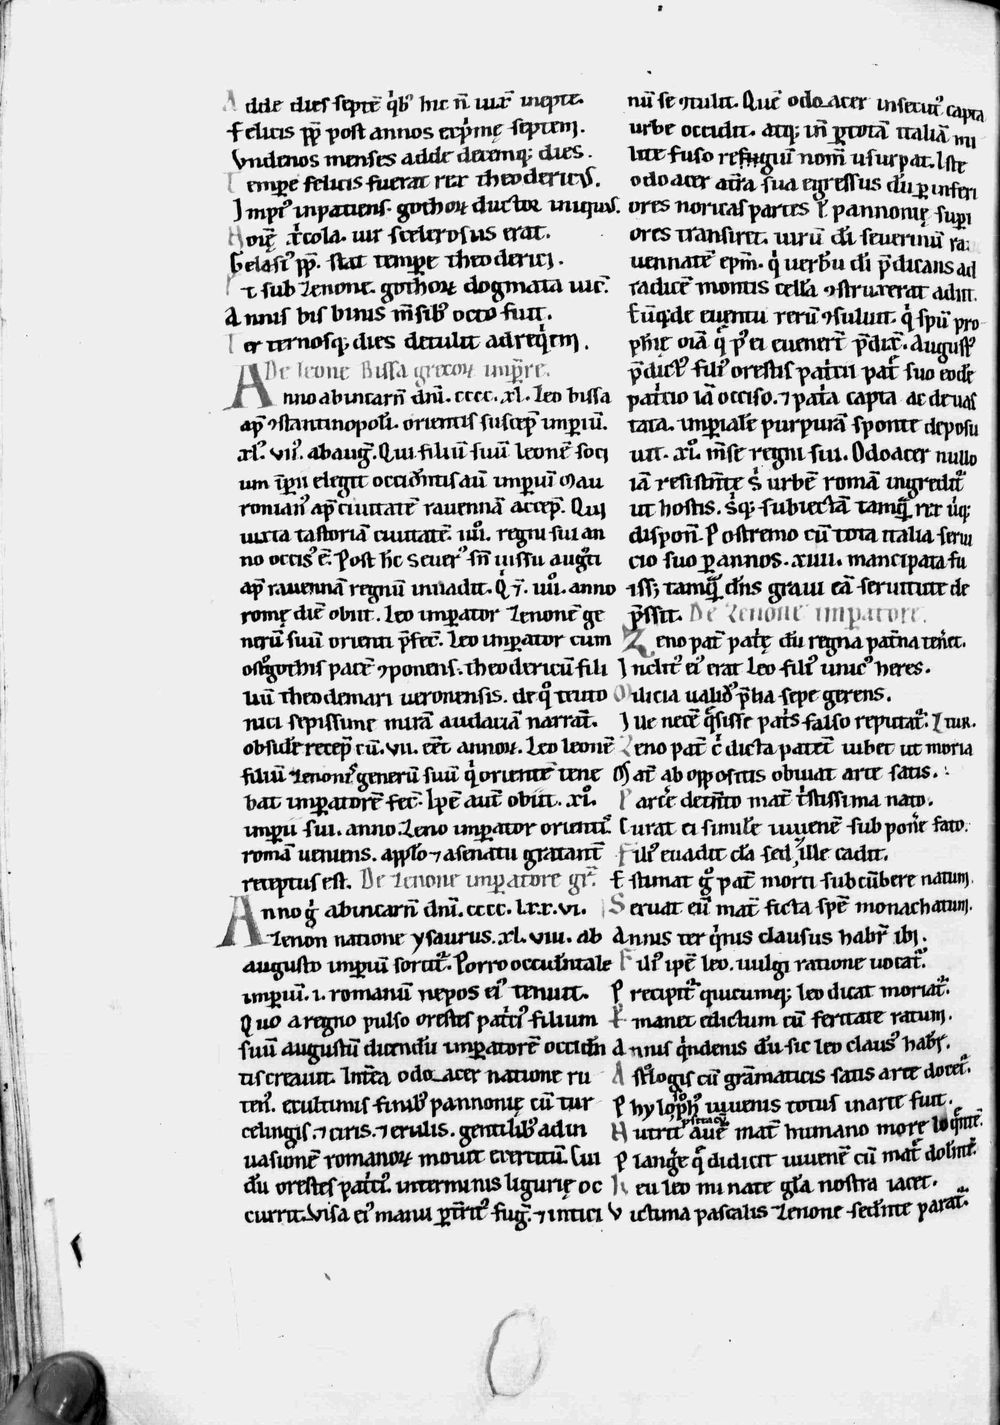 Adde dies septē q̇bꝰ hic n̄ iur̄ inepte.
Felicis p̄p post annos exp̄mę septem.
Vndenos menses adde decemq; dies.
Tempore felicis fuerat rex theodericus.
Imp̄ꝰ inpatiens. gothoꝝ ductor iniquus.
Gelasiꝰ p̄p. stat tempore theoderici.
Et sub Zenone. gothoꝝ dogmata uic̄.
Annis bis binis m̄sibꝰ octo fuit.
Ter ternosq; dies detulit ad req̇em.
De leone Bissa grecoꝝ imp̄re.
Anno ab incarn̄ dn̄i. cccc. xl. Leo bissa
ap̄ ꝯstantinopoli. orientis suscep̄ imp̄iū.
xl. vııꝰ. ab auḡ. Qui filiū suū leonē soci
um īp̄ii elegit occid̄ntis aū imp̄iū Mau
rorianꝰ ap̄ ciuitatē rauennā accep̄. Qui
iuxta tastoriā ciuitatē. ıııı. regni sui an
no occisꝰ ē. Post hc̄ Seuerꝰ sn̄ iussu auḡti
ap̄ rauennā regnū inuadit. Q ı̄. ıııı. anno
romę diē obiit. Leo imperator Zenonē ge
nerū suū orienti p̄fec̄. Leo imperator cum
ostgothis pacē ꝯponens. theodericū fili
um theodemari ueronensis. de q̊ teuto
nici sepissime mirā audaciā narrāt.
obsidē recep̄ cū. vıı. eēt annoꝝ. Leo leonē
filiū Zenonis generū suū q̇ orientē tene
bat imperatorē fec̄. Ipse aūt obiit. xı.
imperii sui. anno. Zeno imperator orientꝰ
romā ueniens. a pplo ⁊ a senatu gratant̄
receptus est. De Zenone imperatore gr̄.
Anno g̊ ab incarn̄ dn̄i. cccc. lxx.vi.
Zenon natione ysaurus. xl. viii. ab
augusto imperiū sortit̄. Porro occid̄ntale
imperiū. ı. romanū nepos eiꝰ tenuit.
Quo a regno pulso orestes pat̄ciꝰ filium
suū augustū dicendū imperatorē occid̄n
tis creauit. Int̄ea odoacer natione ru
tenꝰ. ex ultimis finibꝰ pannonię cū tur
celingis. ⁊ ciris. ⁊ erulis. gentilibꝰ ad in
uasionē romanoꝝ mouit exercitū. Cui
dū orestes pat̄ciꝰ in terminis ligurię oc
currit. Visa eiꝰ manu p̄t̄ritꝰ fuḡ. ⁊ in tici
nū se ꝯtulit. Quē odoacer insecutꝰ capta
urbe occidit. atq; in p̄ totā italiā mi
lite fuso regiū nom̄ usurpat. Iste
odoacer at̄a sua egressus dū p̄ inferi
ores noricas partes ł pannonię supi
ores transiret. uirū di seuerinū ra
uennatē ep̄m. q̇ uerbū di p̄dicans ad
radicē montis cellā ꝯstruxerat adiit.
Eūq; de euentu rerū ꝯsuluit. q̇ spū pro
ph̄ię oīa q̄ p̊ ei euenerēt p̄dix̄. Augustꝰ
p̄dictꝰ filiꝰ orestis pat̄cii pat̄ suo eodē
pat̄cio iā occiso. ⁊ pat̄a capta ac deuas
tata. imperialē purpurā sponte deposu
it. xı. m̄se regni sui. Odoacer nullo
iā resistēte s̄ urbē romā ingredit̄
ut hostis. s̄q; subiectā tamq̄ rex utiq;
disponēs. Postremo cū tota italia serui
cio suo p̄ annos. xıııı. mancipata fu
iss; tamq̄ dn̄s graui eā seruitute de
p̄ssit. De Zenone imperatore.
Zeno pat̄ pat̄ę dū regna pat̄na tenet.
Inclitꝰ ei erat leo filiꝰ unicꝰ heres.
Milicia ualidꝰ p̄lia sepe gerens.
Ille nece q̄sisse pat̄s falso reputat̄. Itur.
Zeno pat̄ c̄ dicta patēt iubet ut moria
Mat̄ ab oppositis obuiat arte satis.
Parc̄e decreto mat̄ t̄stissima nato.
Curat ei similē iuuenē sub ponere fato.
Filiꝰ euadit cl̄a sed ille cadit.
Estimat g̊ pat̄ morti subcūbere natum.
Seruat eū mat̄ ficta spē monachatum.
Annis ter q̇nis clausus habr̄ ibi.
Filiꝰ ipsē leo. uulgi ratione uocat̄.
Precipit̄ quicumq; leo dicat moriat̄.
Et manet edictum cū feritate ratum.
Annis q̇ndenis dū sic leo clausꝰ habr̄.
Astrologis cū grāmaticis satis arte docet̄.
Phylosophꝰ iuuenis totus in arte fuit.
Nutrit psitacū auē mat̄ humano more loquentē.
Plangere q̄ didicit iuuenē cū mat̄ dolent̄.
Heu leo mi nate gl̄a nostra iacet.
Victima pascalis Zenone sed̄nte parat̄.